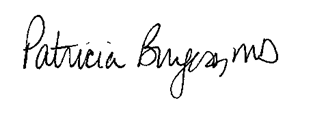 Patricia Burgess, MD